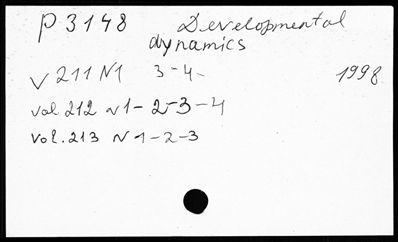 P 3148 Developmental
dynamics
V 211 N1 3-4- 1998
vol 212 N1-2-3-4
vol. 213 N 1-2-3